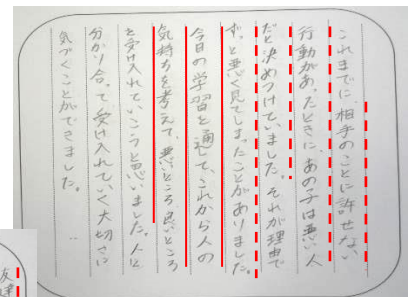 これまでに、相手のことに許せない
行動があったときに、あの子は悪い人
だと決めつけていました。それが理由で
ずっと悪く見てしまったことがありました。
今日の学習を通して、これから人の
気持ちを考えて、悪いところ良いところ
を受け入れていこうと思いました。人と
分かり合って受け入れていく大切さに
気づくことができました。
友達